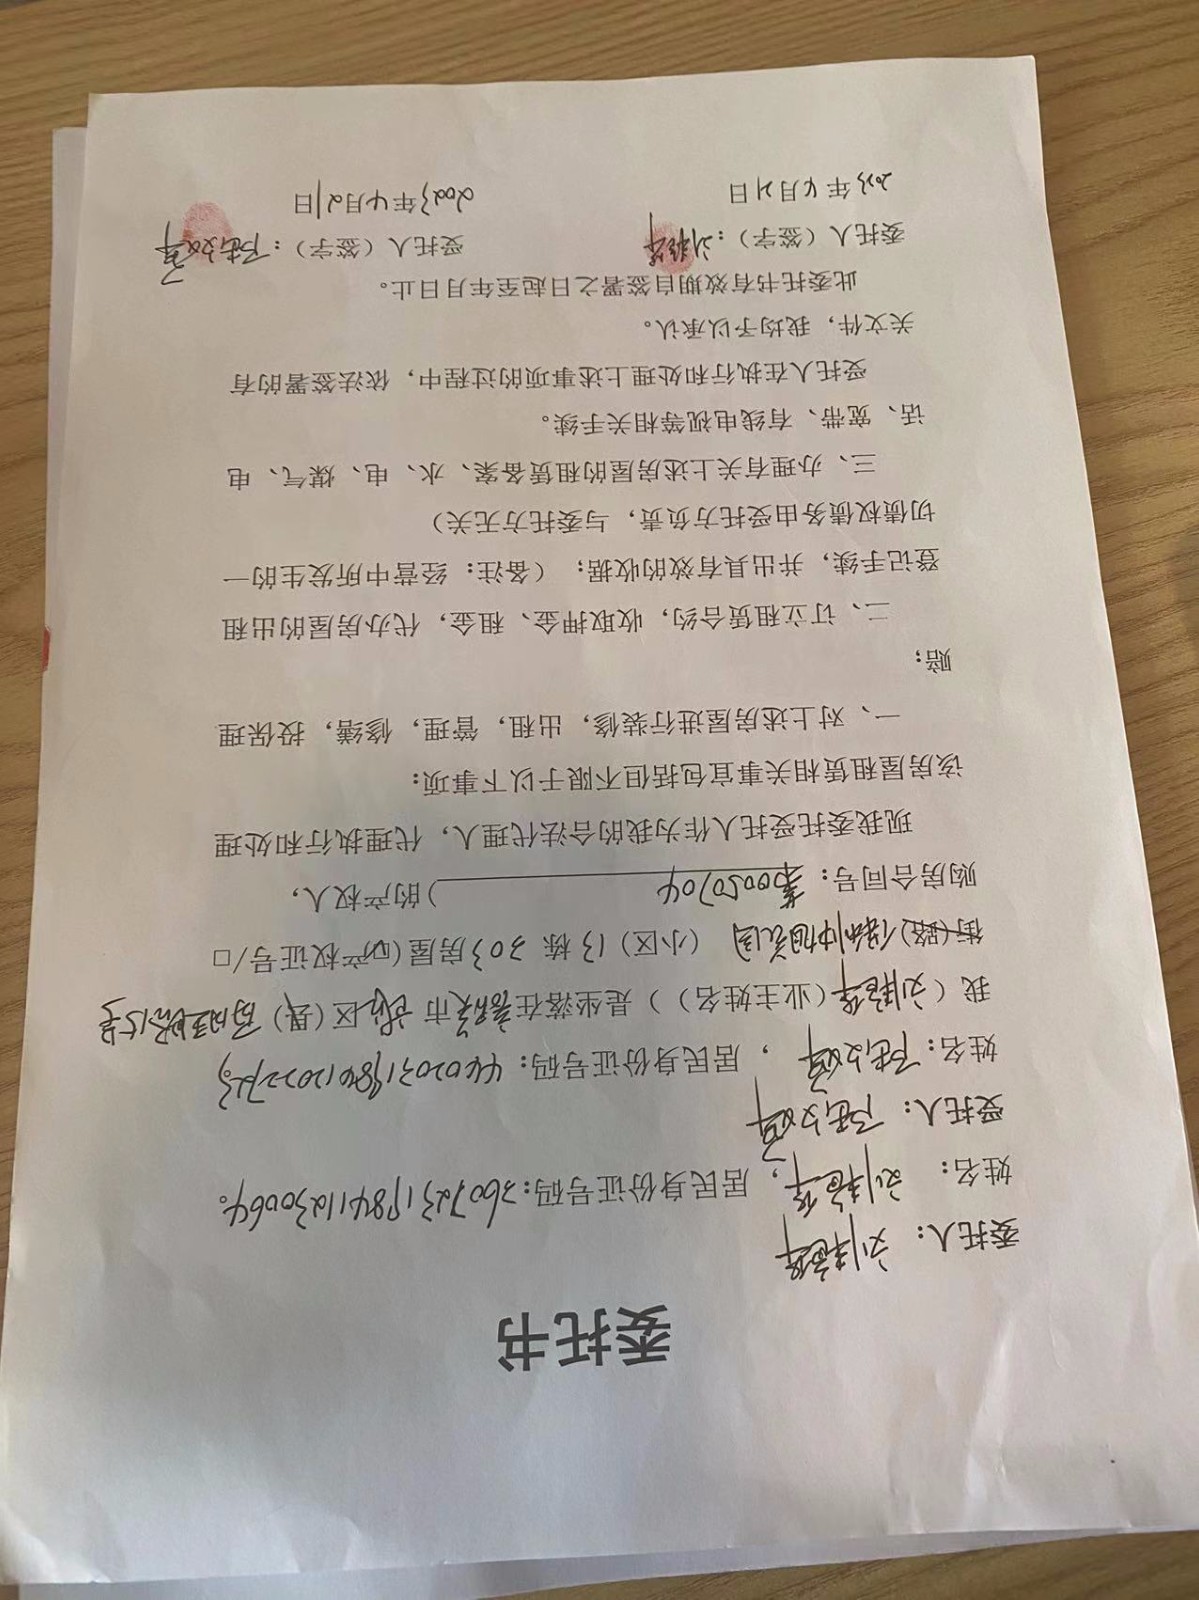 委托书
委托人：刘
姓名：刘，居民身份证号码：360723198411230064。
受托人：陆
姓名：陆，居民身份证号码：440203198612022723
我（刘（业主姓名））是坐落在韶关市 区（县）
街（路） （小区）13栋 303房屋（☑产权证号/□
购房合同号：00050704 ）的产权人，
现我委托受托人作为我的合法代理人，代理执行和处理
该房屋租赁相关事宜包括但不限于以下事项：
一、对上述房屋进行装修，出租，管理，修缮，投保理
赔；
二、订立租赁合约，收取押金、租金，代办房屋的出租
登记手续，并出具有效的收据；（备注：经营中所发生的一
切债权债务由受托方负责，与委托方无关）
三、办理有关上述房屋的租赁备案、水、电、煤气、电
话、宽带、有线电视等相关手续。
受托人在执行和处理上述事项的过程中，依法签署的有
关文件，我均予以承认。
此委托书有效期自签署之日起至年月日止。
委托人（签字）：刘 受托人（签字）：陆
2023年4月21日 2023年4月21日